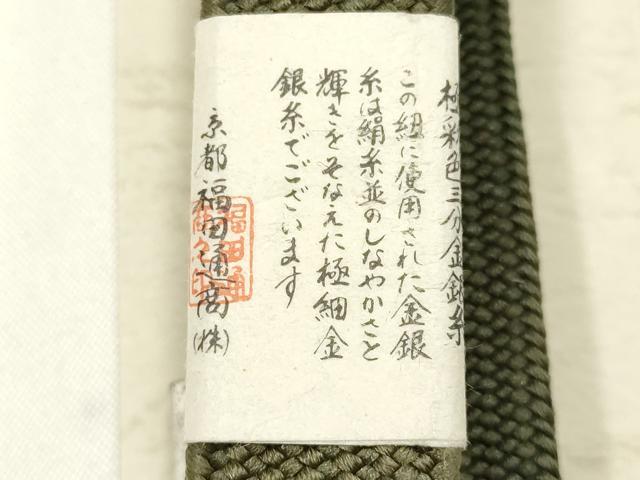 極彩色三分金銀糸
この紐に使用された金銀
糸は絹糸並のしなやかさと
輝きをそなえた極細金
銀糸でございます
京都福田通商(株)